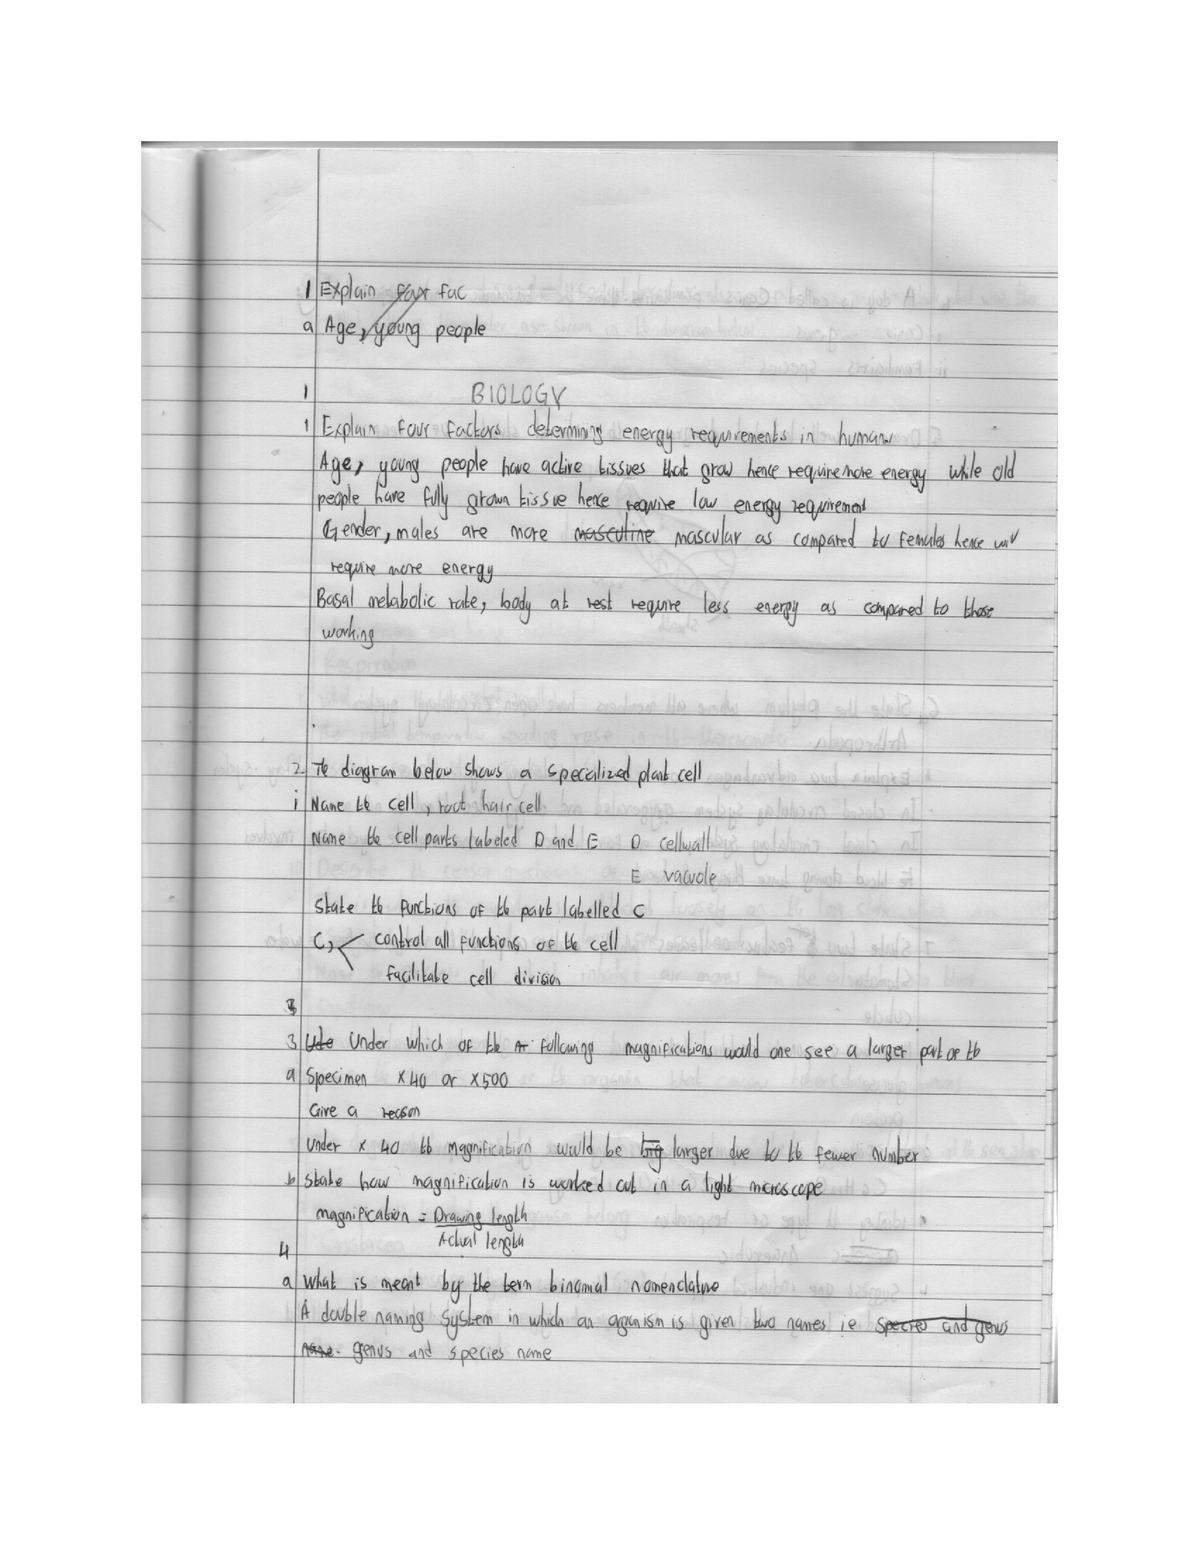 1 Explain four fac
a Age, young people
1 BIOLOGY
1 Explain four factors determining energy requirements in human
Age, young people have active tissues that grow hence require more energy while old
people have fully grown tissue hence require low energy requirement
Gender, males are more masculine mascular as compared to females hence will
require more energy
Basal metabolic rate, body at rest require less energy as compared to those
working
2 The diagram below shows a specialized plant cell
i Name the cell, root hair cell
Name the cell parts labeled D and E D cellwall
E vacuole
State the functions of the part labelled C
C, control all functions of the cell
facilitate cell division
3
3 Under which of the following magnifications would one see a larger part of the
a Specimen X40 or X500
Give a reason
Under X 40 the magnification would be big larger due to the fewer number
b State how magnification is worked out in a light microscope
magnification = Drawing length
Actual length
4
a What is meant by the term binomal nomenclature
A double naming system in which an organism is given two names i.e species and genus
name. genus and species name